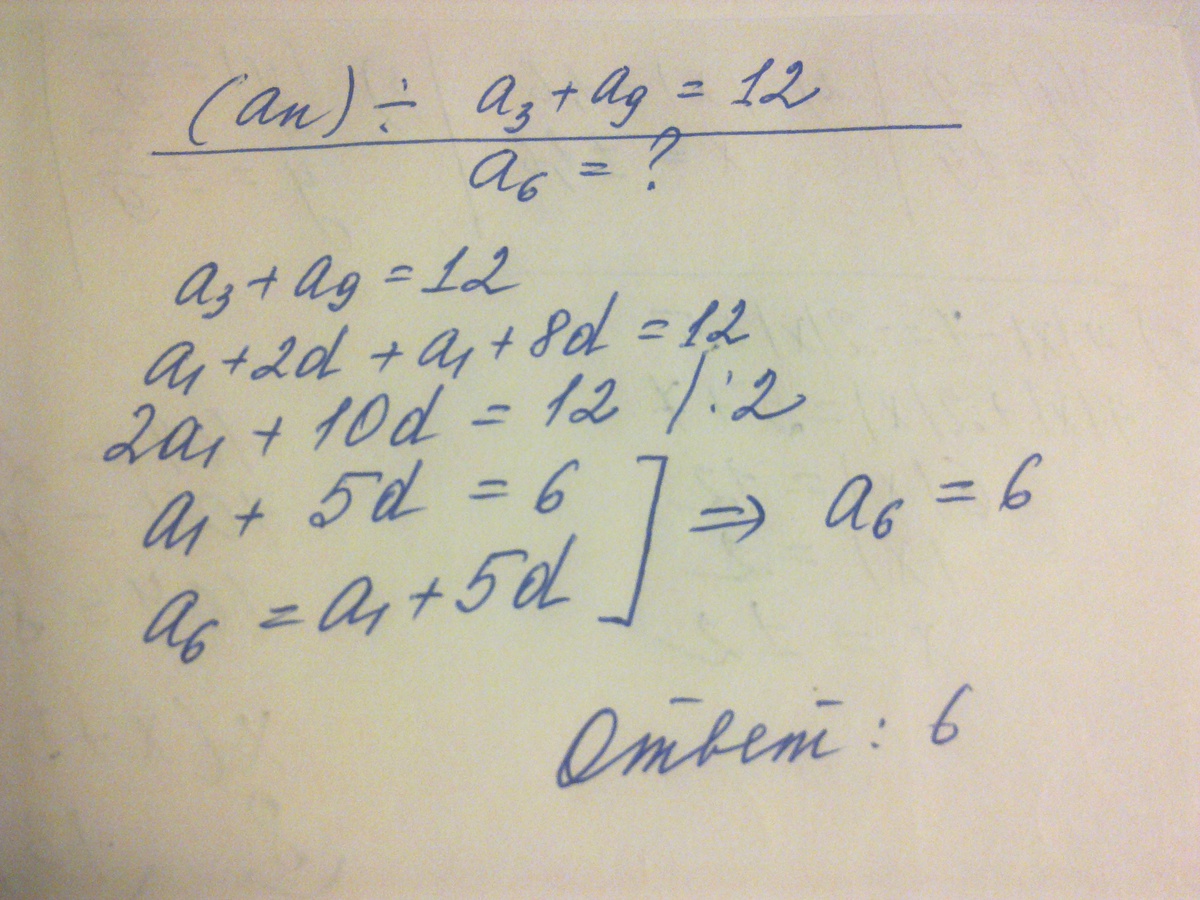 (an) ÷ a₃ + a₉ = 12
a₆ = ?
a₃ + a₉ = 12
a₁ + 2d + a₁ + 8d = 12
2a₁ + 10d = 12 / : 2
a₁ + 5d = 6
a₆ = a₁ + 5d ] ⇒ a₆ = 6
Ответ : 6